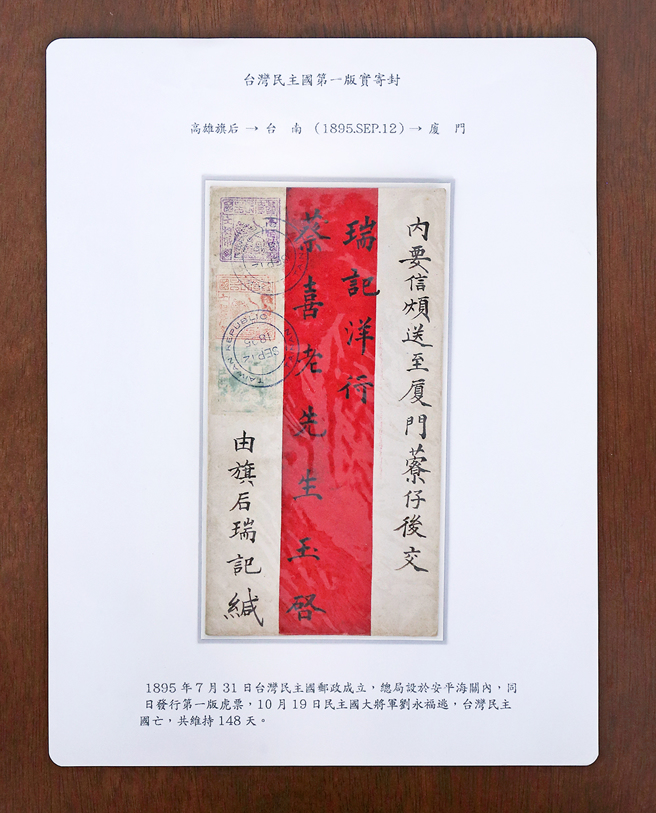 台灣民主國第一版實寄封
高雄旗后 → 台 南 （1895.SEP.12）→ 廈 門
內要信煩送至廈門藔仔後交
瑞記洋行
蔡喜老先生玉啓
由旗后瑞記緘
TAIWAN REPUBLIC
SEP 12
1895
1895 年 7 月 31 日台灣民主國郵政成立，總局設於安平海關內，同
日發行第一版虎票，10 月 19 日民主國大將軍劉永福逃，台灣民主
國亡，共維持 148 天。